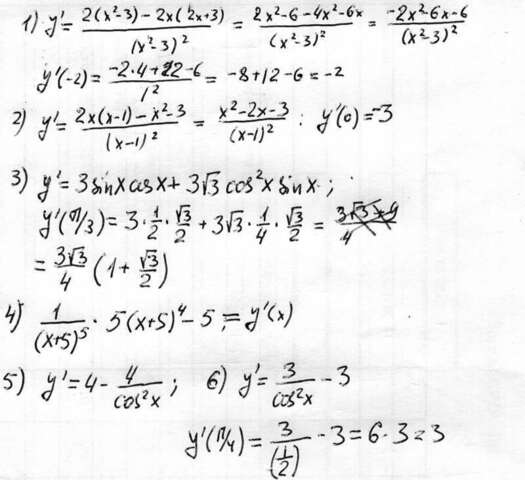 1) y' = (2(x²-3) - 2x(2x+3))/(x²-3)² = (2x²-6-4x²-6x)/(x²-3)² = (-2x²-6x-6)/(x²-3)²
y'(-2) = (-2·4+12-6)/1² = -8+12-6 = -2
2) y' = (2x(x-1) - x²-3)/(x-1)² = (x²-2x-3)/(x-1)² : y'(0) = -3
3) y' = 3 sinx cosx + 3√3 cos²x sinx ;
y'(π/3) = 3·1/2·√3/2 + 3√3·1/4·√3/2 =
= 3√3/4 (1 + √3/2)
4) 1/(x+5)⁵ · 5(x+5)⁴ - 5 ; = y'(x)
5) y' = 4 - 4/cos²x ; 6) y' = 3/cos²x - 3
y'(π/4) = 3/(1/2) - 3 = 6·3 = 3